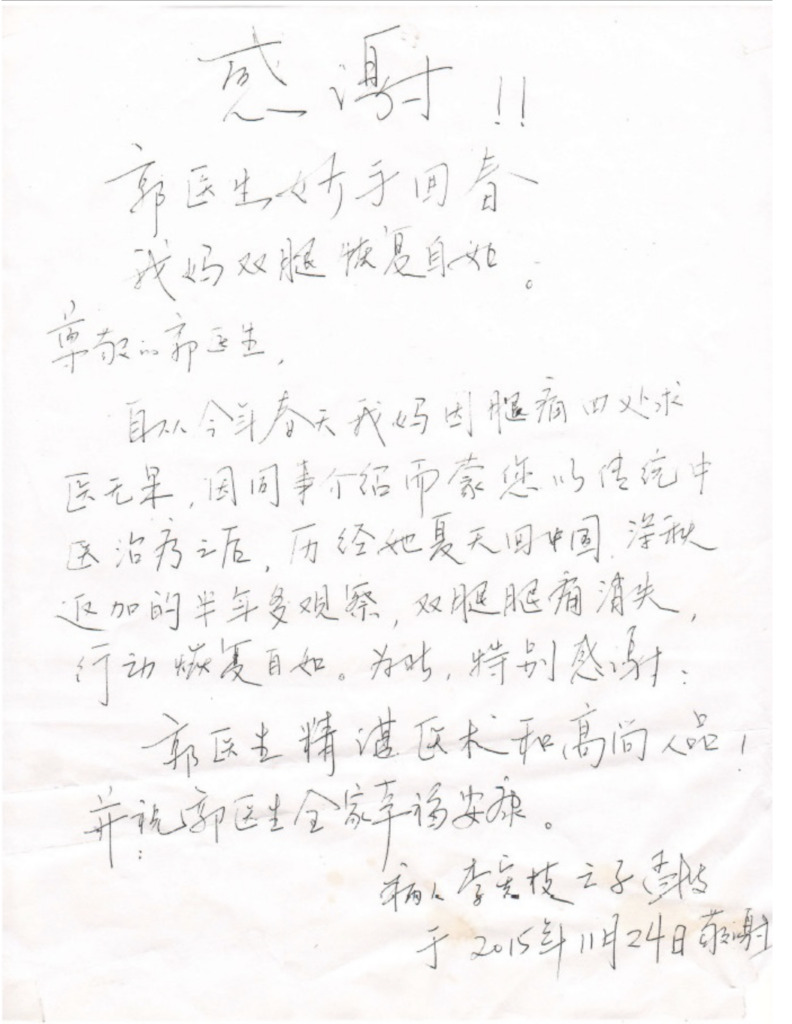 感谢!!
郭医生妙手回春
我妈双腿恢复自如。
尊敬的郭医生,
自从今年春天我妈因腿痛四处求
医无果,因同事介绍而蒙您以传统中
医治疗之后,历经她夏天回中国,深秋
返加的半年多观察,双腿腿痛消失,
行动恢复自如。为此,特别感谢:
郭医生精湛医术和高尚人品!
并祝:郭医生全家幸福安康。
病人李宪枝之子
于2015年11月24日敬谢